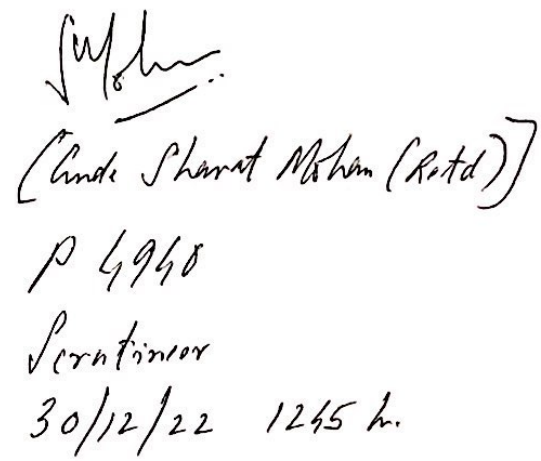 SMohan
[Cmde Sharat Mohan (Retd)]
P 4940
Scrutineer
30/12/22 1245 h.